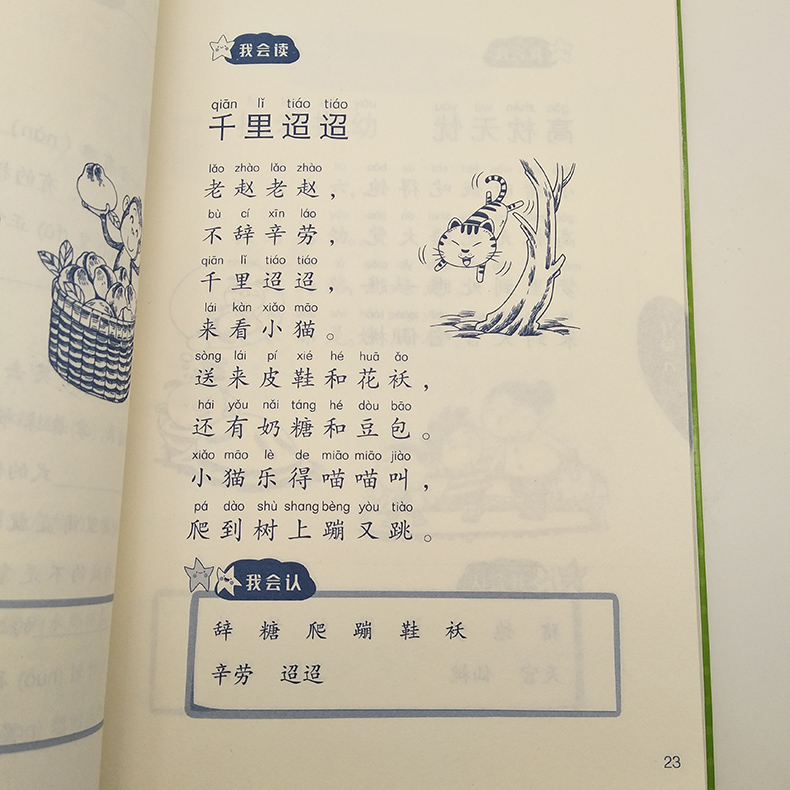 我会读
qiān lǐ tiáo tiáo
千里迢迢
lǎo zhào lǎo zhào
老赵老赵，
bù cí xīn láo
不辞辛劳，
qiān lǐ tiáo tiáo
千里迢迢，
lái kàn xiǎo māo
来看小猫。
sòng lái pí xié hé huā ǎo
送来皮鞋和花袄，
hái yǒu nǎi táng hé dòu bāo
还有奶糖和豆包。
xiǎo māo lè de miāo miāo jiào
小猫乐得喵喵叫，
pá dào shù shang bèng yòu tiào
爬到树上蹦又跳。
我会认
辞 糖 爬 蹦 鞋 袄
辛劳 迢迢
23